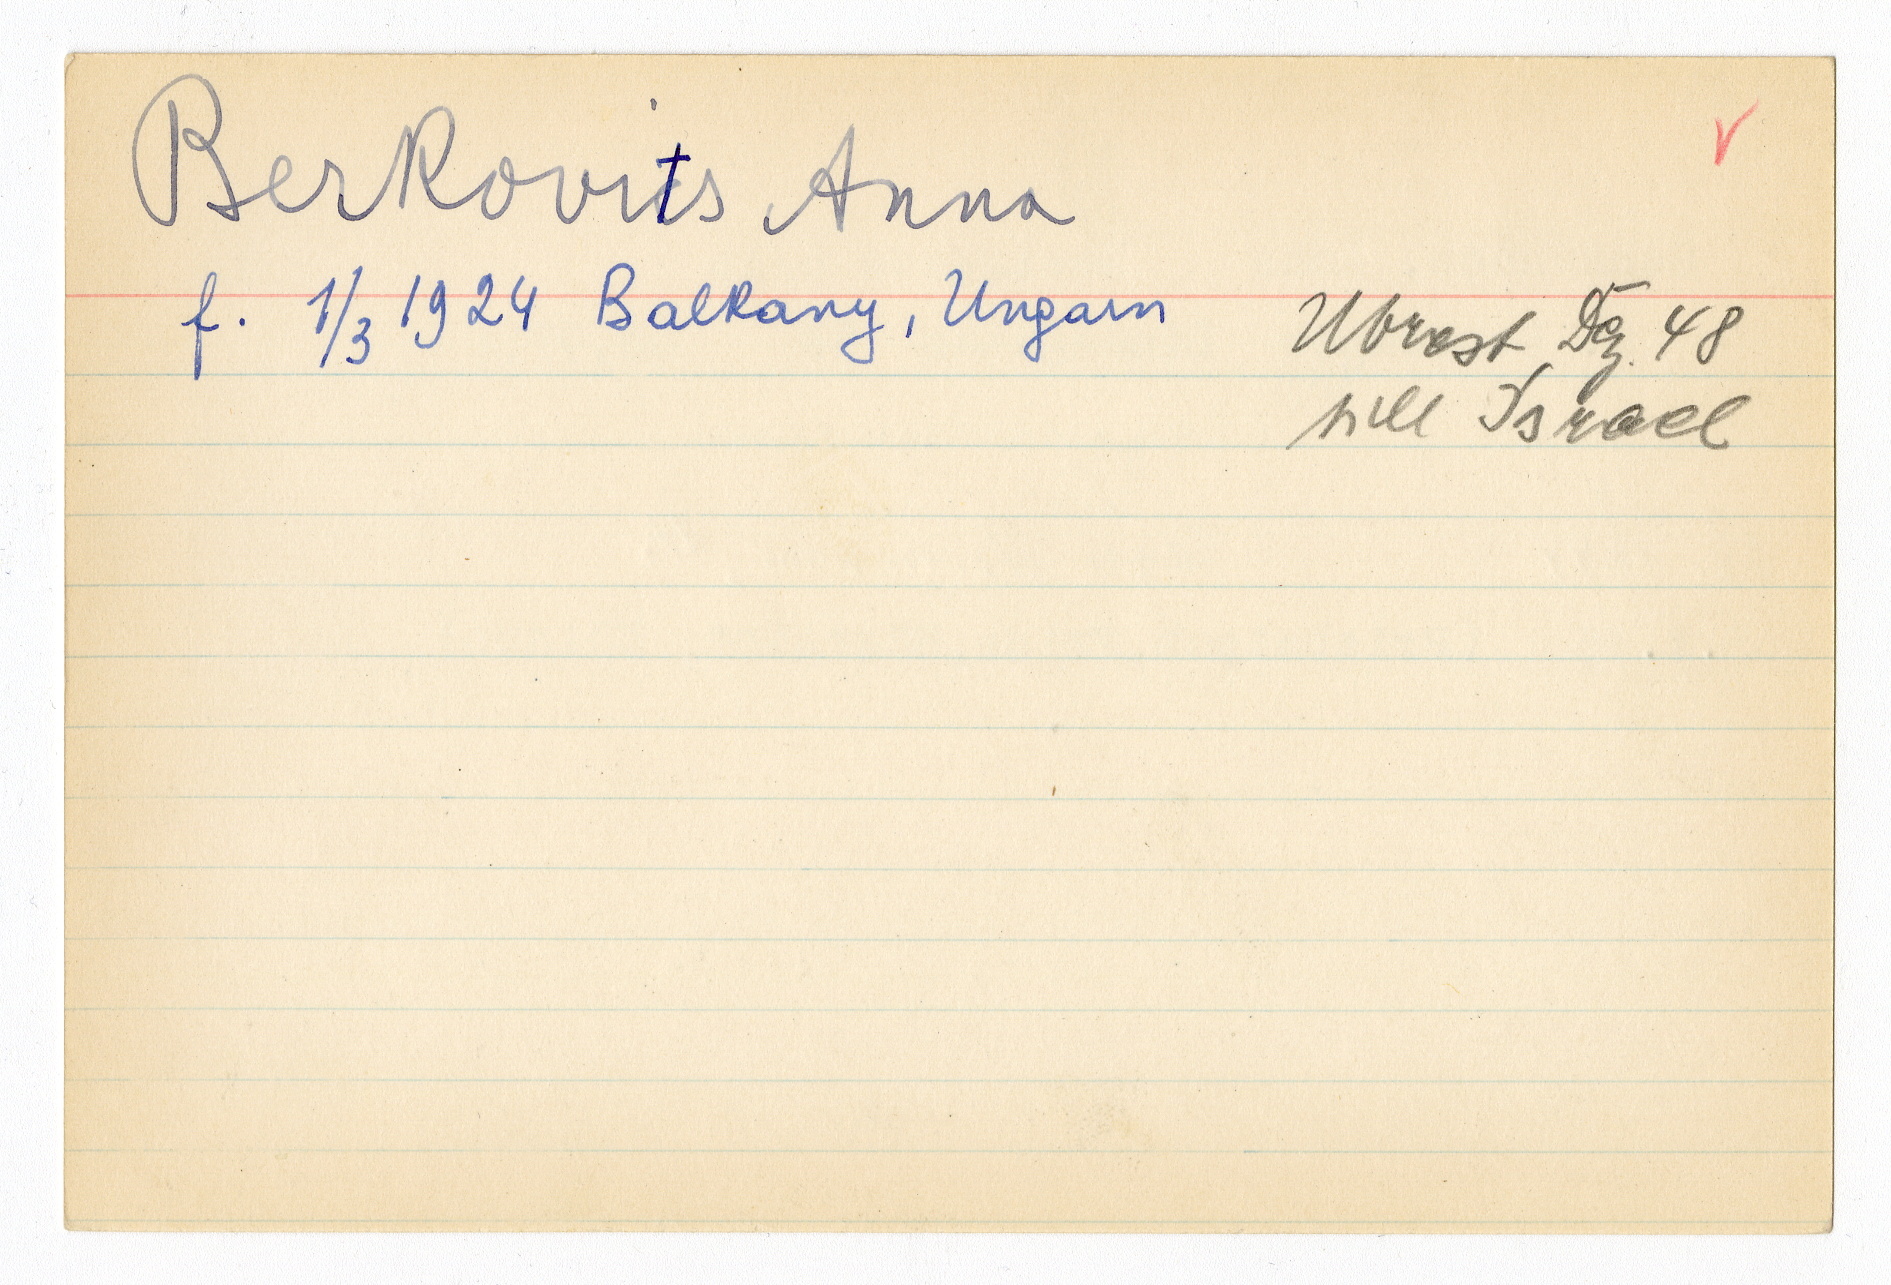 Berkovits Anna
f. 1/3 1924 Balkany, Ungarn
Utvrest Dez. 48
till Israel